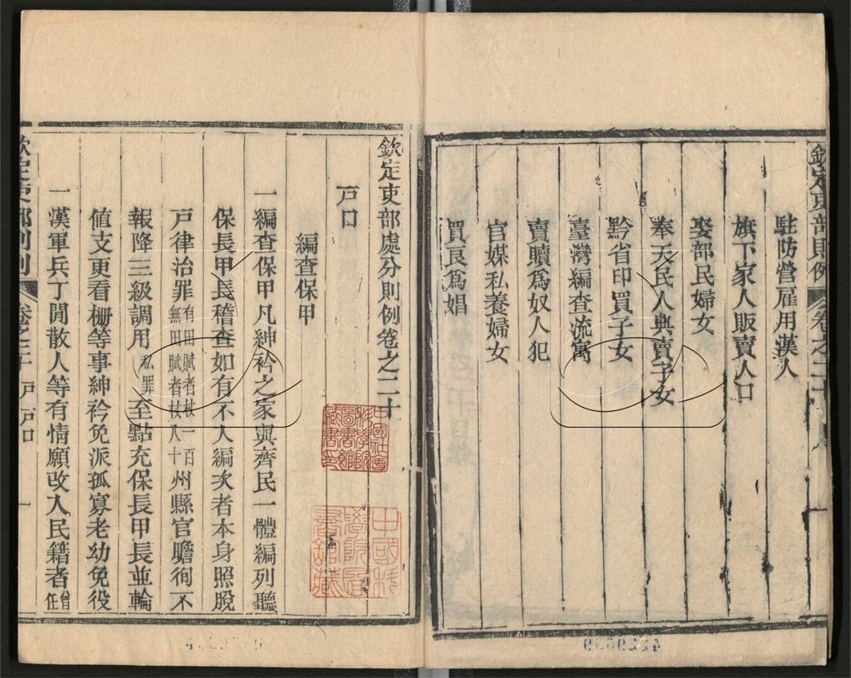 欽定吏部則例 卷之二十
駐防營雇用漢人
旗下家人販賣人口
娶部民婦女
奉天民人典賣子女
黔省印買子女
臺灣編查流寓
賣贖爲奴人犯
官媒私養婦女
買良爲娼
欽定吏部處分則例卷之二十
戸口
編查保甲
一編查保甲凡紳衿之家與齊民一體編列聽
保長甲長稽查如有不入編次者本身照脫
戸律治罪有田賦者杖一百無田賦者杖八十州縣官瞻徇不
報降三級調用私罪至點充保長甲長並輪
値支更看柵等事紳衿免派孤寡老幼免役
一漢軍兵丁閒散人等有情願改入民籍者曾任
欽定吏部則例 卷之二十 戸 戸口 一